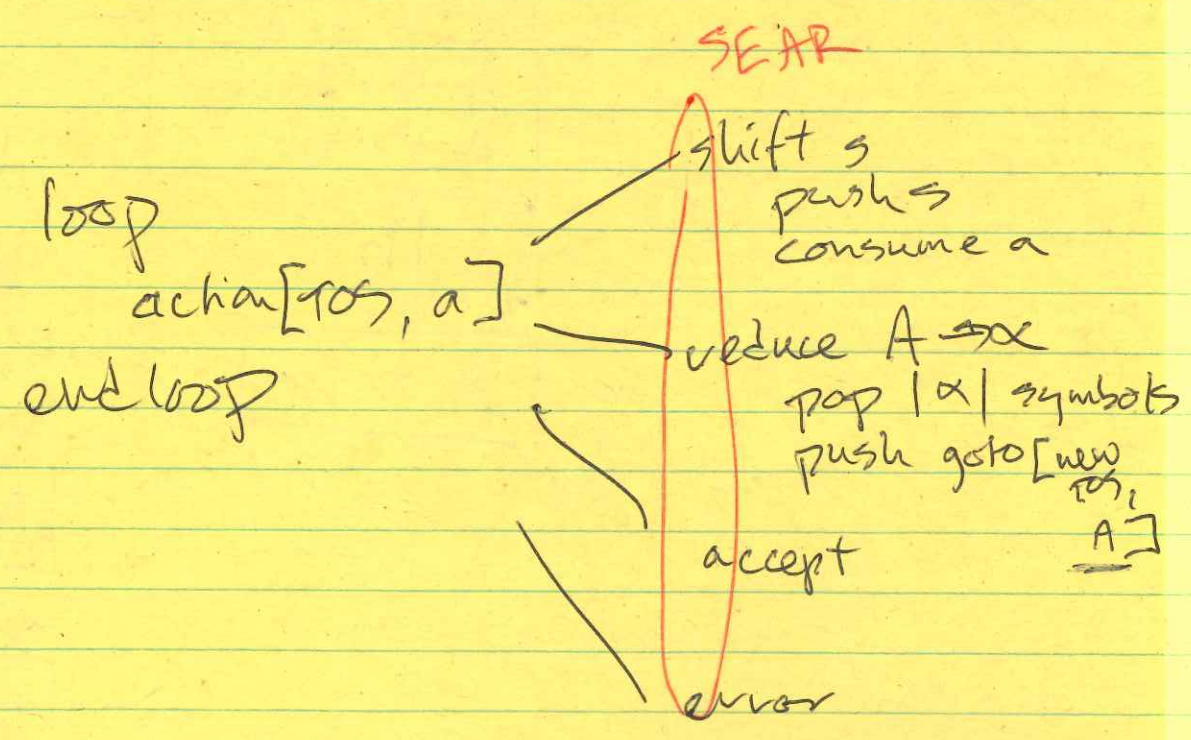 SEAR
loop
action[TOS, a]
end loop
shift s
push s
consume a
reduce A → α
pop |α| symbols
push goto[new
TOS,
A]
accept
error